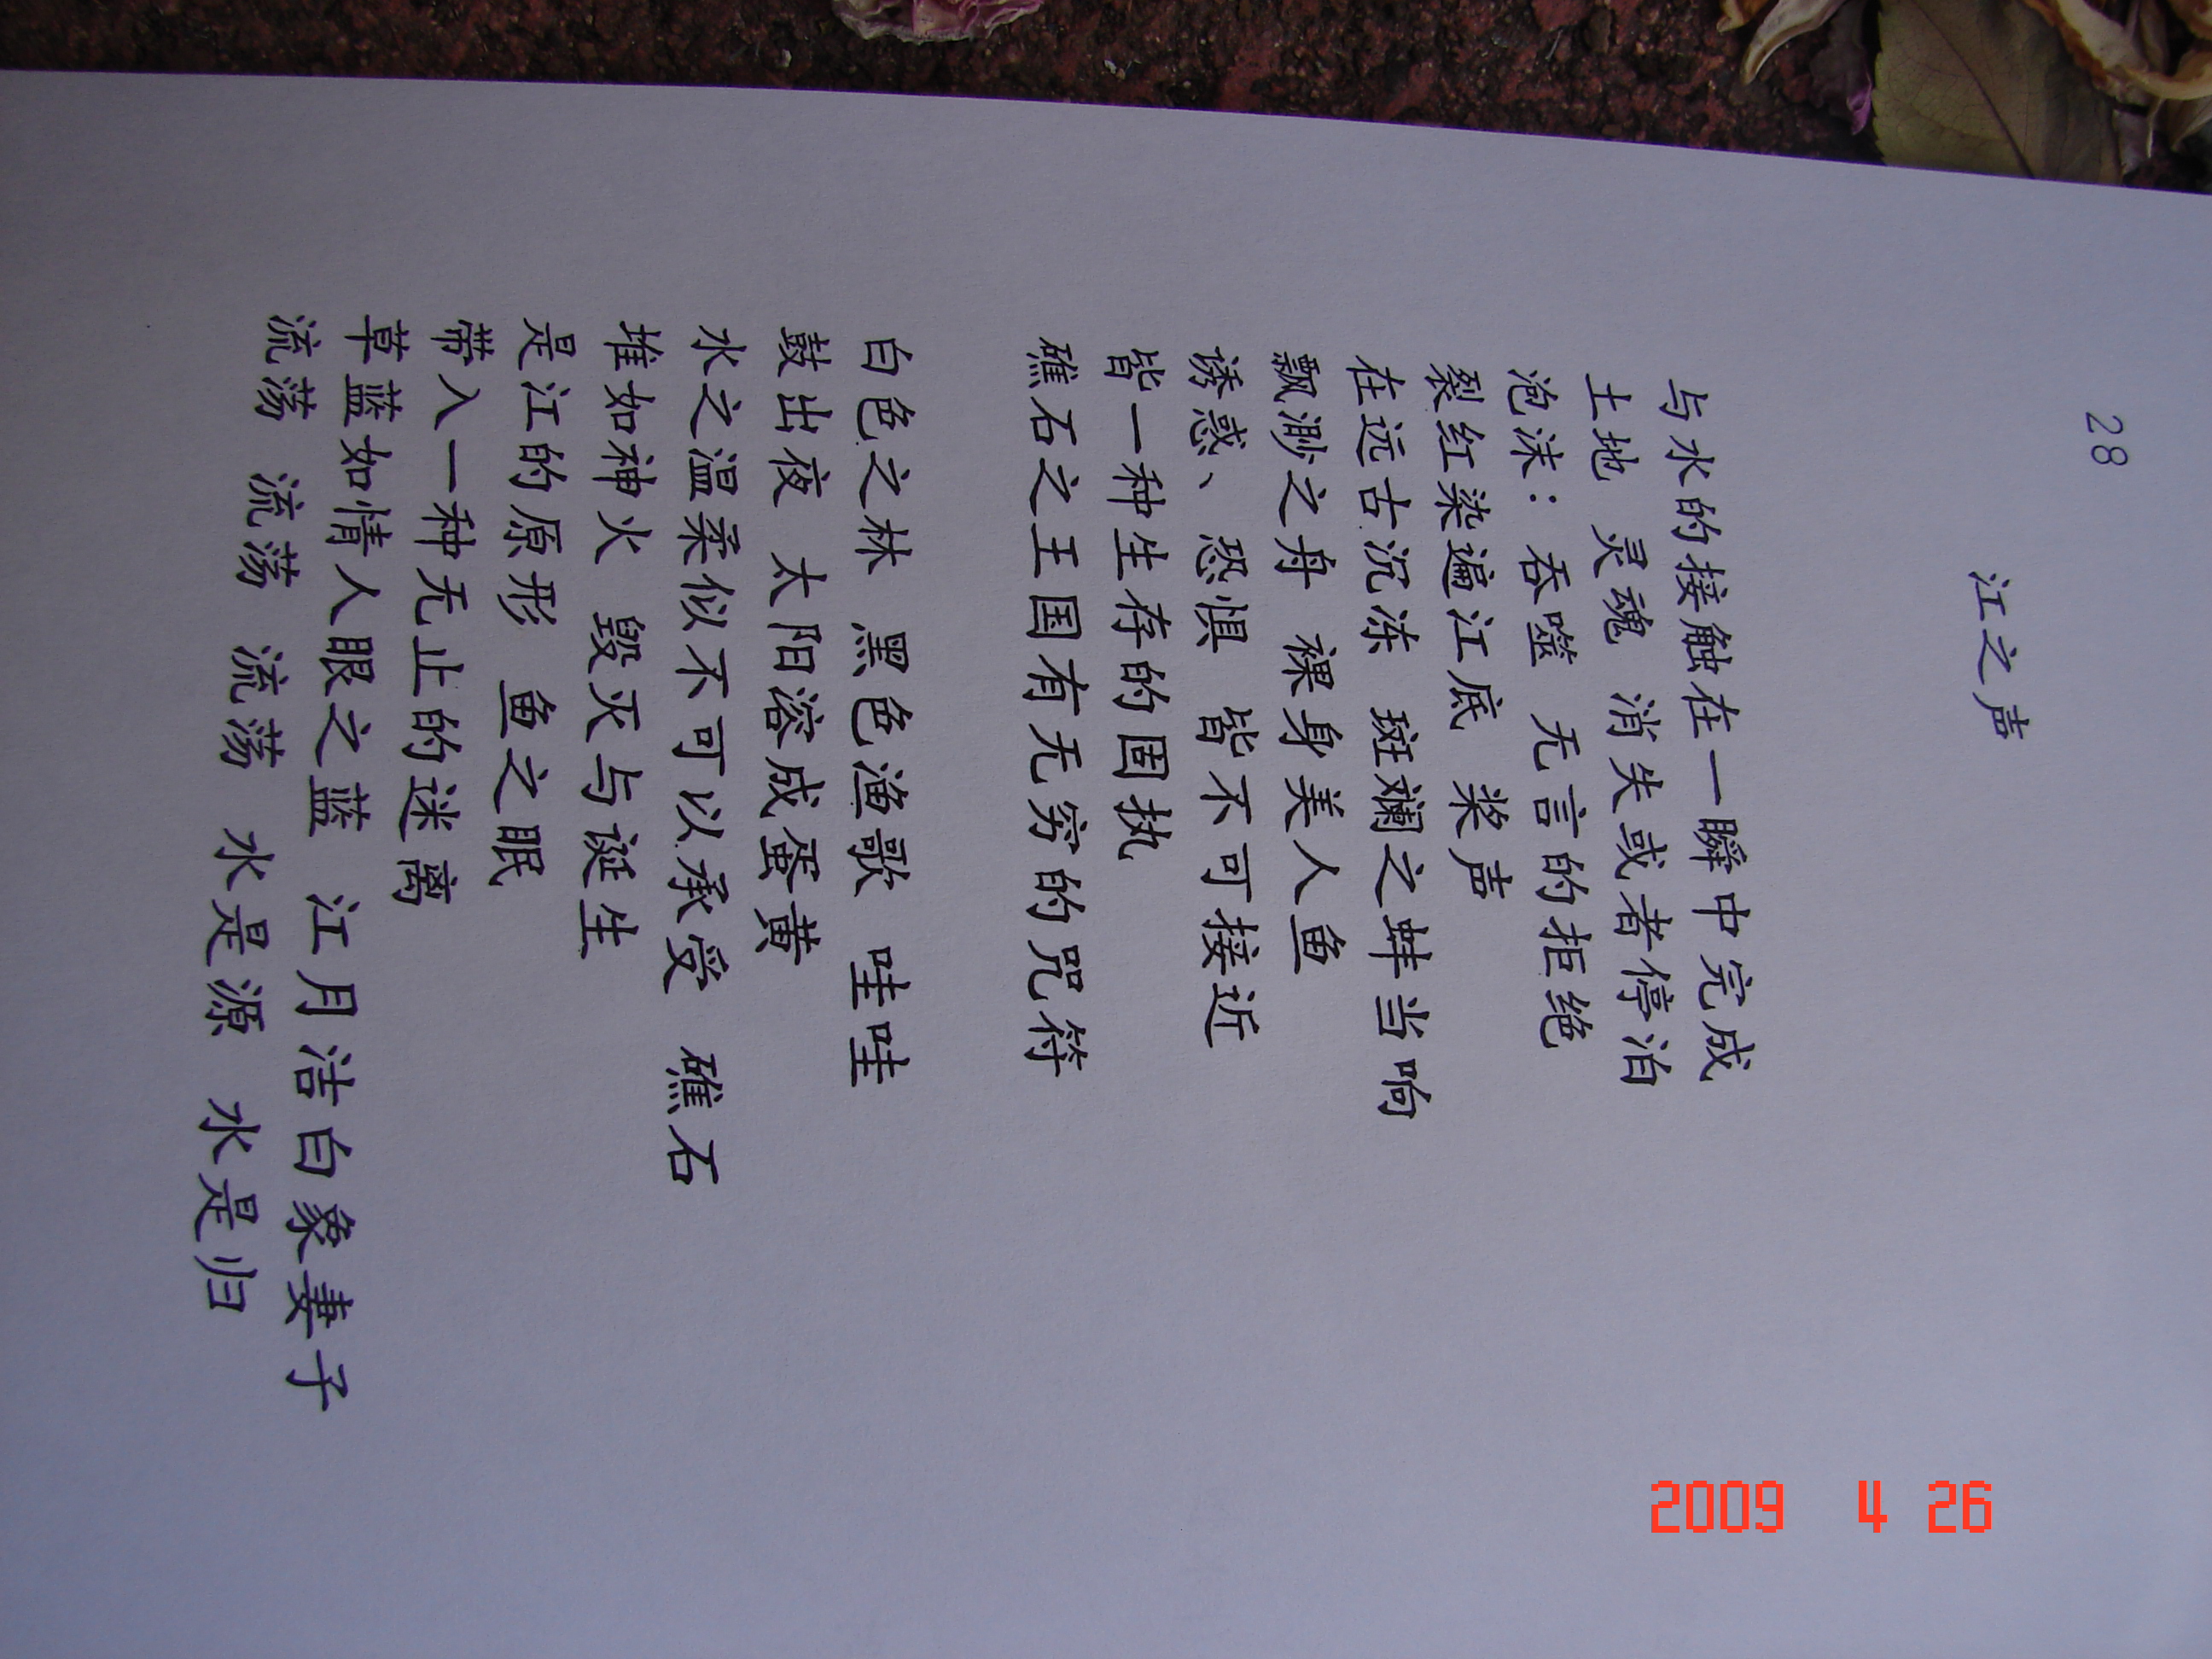 28
江之声
与水的接触在一瞬中完成
土地 灵魂 消失或者停泊
泡沫：吞噬 无言的拒绝
裂红染遍江底 桨声
在远古沉冻 斑斓之蚌当响
飘渺之舟 裸身美人鱼
诱惑、恐惧 皆不可接近
皆一种生存的固执
礁石之王国有无穷的咒符
白色之林 黑色渔歌 哇哇
鼓出夜 太阳溶成蛋黄
水之温柔似不可以承受 礁石
堆如神火 毁灭与诞生
是江的原形 鱼之眠
带入一种无止的迷离
草蓝如情人眼之蓝 江月洁白象妻子
流荡 流荡 流荡 水是源 水是归
2009 4 26